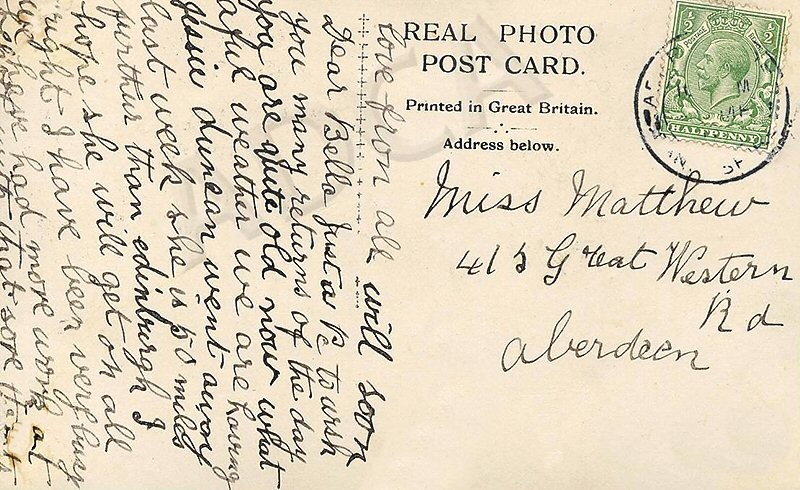 REAL PHOTO
POST CARD.
Printed in Great Britain.
Address below.
HALFPENNY
Miss Matthew
415 Great Western
Rd
Aberdeen
love from all will soon
Dear Bella Just a Pc to wish
you many returns of the day
you are quite old now what
aful weather we are having
Jessie duncan went away
last week she is 50 miles
further than edinburgh I
hope she will get on all
right I have been very busy
we have had more work at
that sore